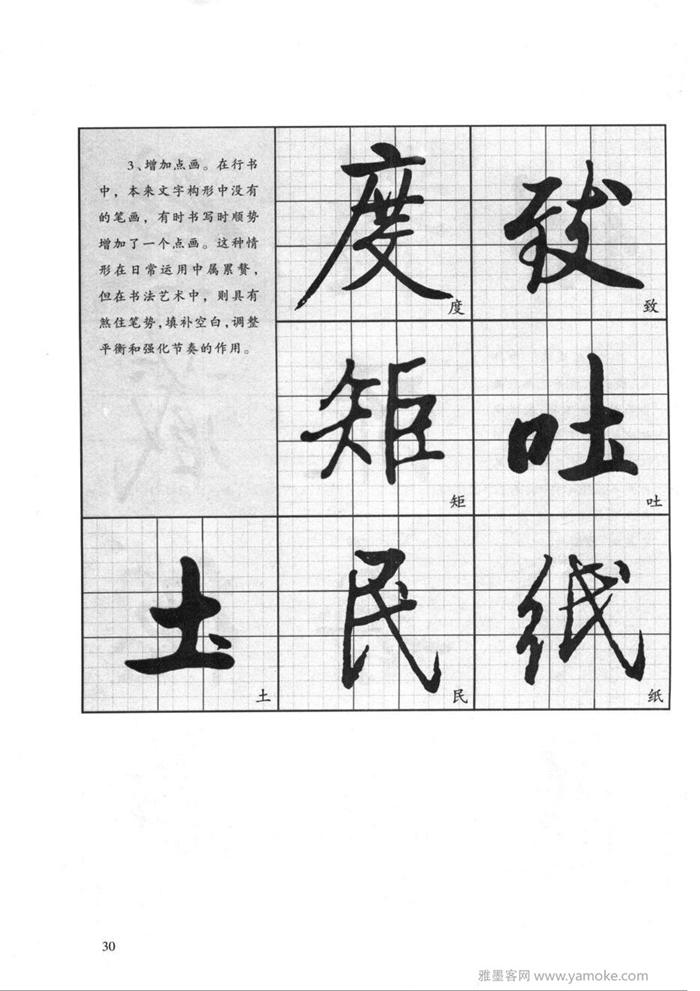 3、增加点画。在行书
中，本来文字构形中没有
的笔画，有时书写时顺势
增加了一个点画。这种情
形在日常运用中属累赘，
但在书法艺术中，则具有
煞住笔势，填补空白，调整
平衡和强化节奏的作用。
度 致
度 致
矩 吐
矩 吐
土 民 纸
土 民 纸
30
雅墨客网 www.yamoke.com